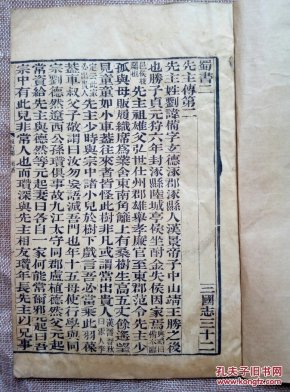 蜀書二
三國志三十二
先主傳第二
先主姓劉諱備字玄德涿郡涿縣人漢景帝子中山靖王勝之後
也勝子貞元狩六年封涿縣陸城亭侯坐酎金失侯因家焉
先主祖雄父弘世仕州郡雄舉孝廉官至東郡范令先主少
孤與母販履織席為業舍東南角籬上有桑樹生高五丈餘遙望
見童童如小車蓋往來者皆怪此樹非凡或謂當出貴人
先主少時與宗中諸小兒於樹下戲言吾必當乘此羽葆
蓋車叔父子敬謂曰汝勿妄語滅吾門也年十五母使行學與同
宗劉德然遼西公孫瓚俱事故九江太守同郡盧植德然父元起
常資給先主與德然等元起妻曰各自一家何能常爾邪起曰吾
宗中有此兒非常人也而瓚深與先主相友瓚年長先主以兄事